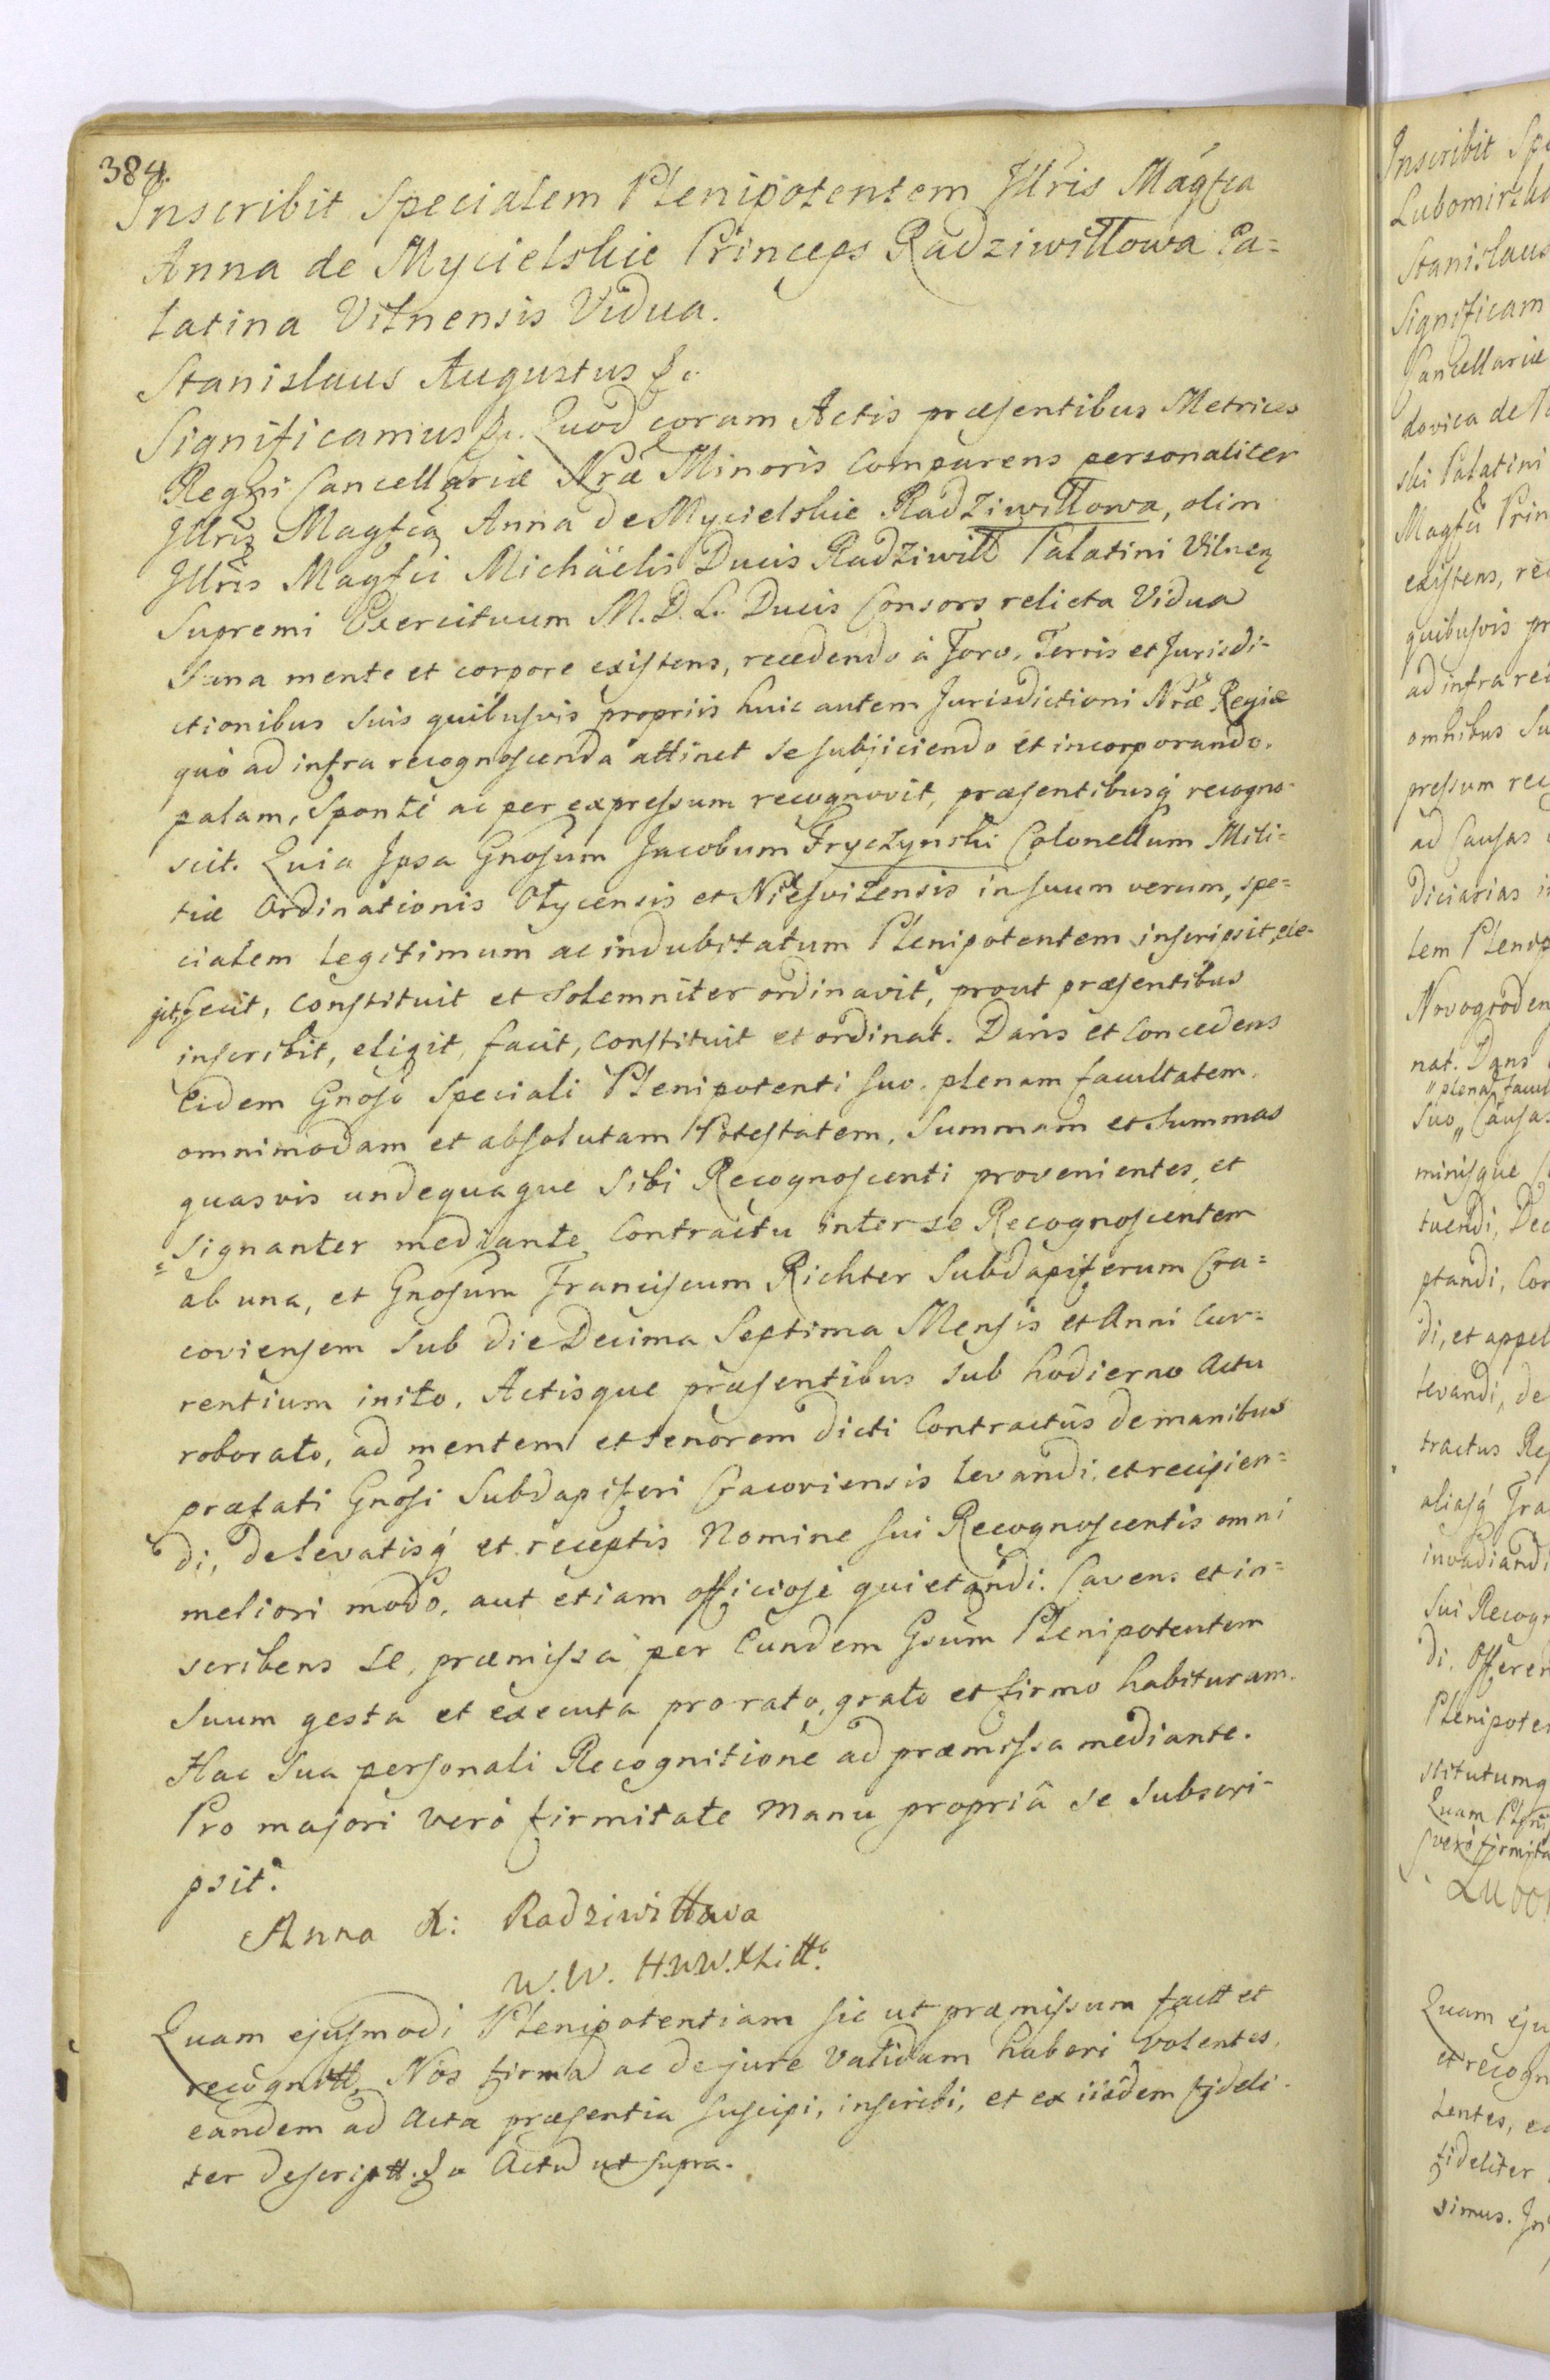 384.
Inscribit Specialem Plenipotentem Jllris Magfca
Anna de Mycielskie Princeps Radziwiłłowa Pa=
latina Vilnensis Vidua.
Stanislaus Augustus &c.
Significamus &c. Quod coram Actis præsentibus Metrices
Regni Cancellariæ Nræ Minoris Comparens personaliter
Jllris Magfca Anna de Mycielskie Radziwiłłowa, olim
Jllris Magfci Michäelis Ducis Radziwiłł Palatini Vilnen
Supremi Exercituum M. D. L. Ducis Consors relicta Vidua
Sana mente et corpore existens, recedendo à Foro, Terris et Jurisdi-
ctionibus Suis quibusvis propriis huic autem Jurisdictioni Nræ Regiæ
quò ad infra recognoscenda attinet se subjiciendo et incorporando.
palam, Sponté ac per expressum recognovit, præsentibusq́ recogno-
scit. Quia Jpsa Gnosum Jacobum Fryczynski Colonellum Mili-
tiæ Ordinationis Olycensis et Niesvizensis in suum verum, spe=
cialem legitimum ac indubitatum Plenipotentem inscripsit, ele-
git, fecit, constituit et solemniter ordinavit, prout præsentibus
inscribit, eligit, facit, constituit et ordinat. Dans et Concedens
Eidem Gnoso Speciali Plenipotenti suo. plenam facultatem.
omnimodam et absolutam Potestatem, Summam et Summas
quasvis undequaque Sibi Recognoscenti provenientes, et
signanter mediante Contractu inter se Recognoscentem
ab una, et Gnosum Franciscum Richter Subdapiferum Cra=
coviensem sub die Decima Septima Mensis et Anni Cur=
rentium inito, Actisque præsentibus sub hodierno Actu
roborato, ad mentem et tenorem dicti Contractûs de manibus
præfati Gnosi Subdapiferi Cracoviensis levandi, et recipien=
di, de levatisq́ et receptis Nomine sui Recognoscentis omni
meliori modo, aut etiam officiosè quietandi. Cavens et in=
scribens se, præmissa per Eundem Gsum Plenipotentem
Suum gesta et executa pro rato, grato et firmo habituram.
Hac Sua personali Recognitione ad præmissa mediante.
Pro majori verò firmitate Manu propriâ se subscri-
psit.
Anna X: Radziwiłłowa
W. W. H.W.W.X.Litt.
Quam ejusmodi Plenipotentiam sic ut præmissum factt et
recognitt, Nos firma ac de jure validam haberi volentes,
eandem ad Acta præsentia suscipi, inscribi, et ex iisdem fideli-
ter descriptt. &c Actu ut supra.
Inscribit Spe
Lubomirsk
Stanislaus
Significam
Cancellariæ
dovica de
ski Palatini
Magfci Prin
existens, re
quibusvis pr
ad infra rec
omnibus Su
pressum rec
ad Causas
diciarias in
lem Plenip
Novogroden
nat. Dans
"plenam facul
suo " Causas
minisque
tuendi, Dec
ptandi, Con
di, et appel
levandi, de
tractus Re
aliasq́ Tra
invadiandi
Sui Recogn
di. Offeren
Plenipoten
stitutumq
Quam Pleni
verò firmita
Lubo
Quam eju
et recogn
lentes, ea
fideliter
simus. Jn